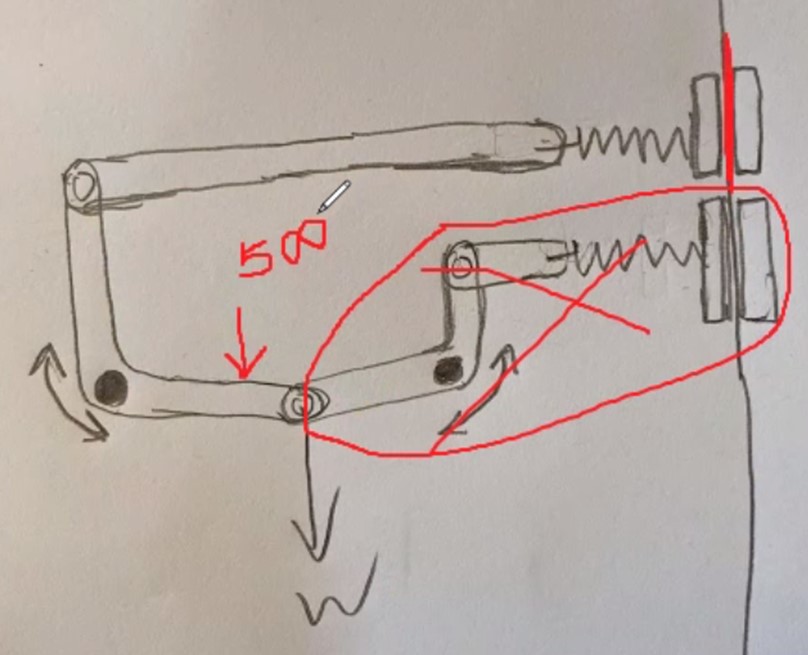 500
W